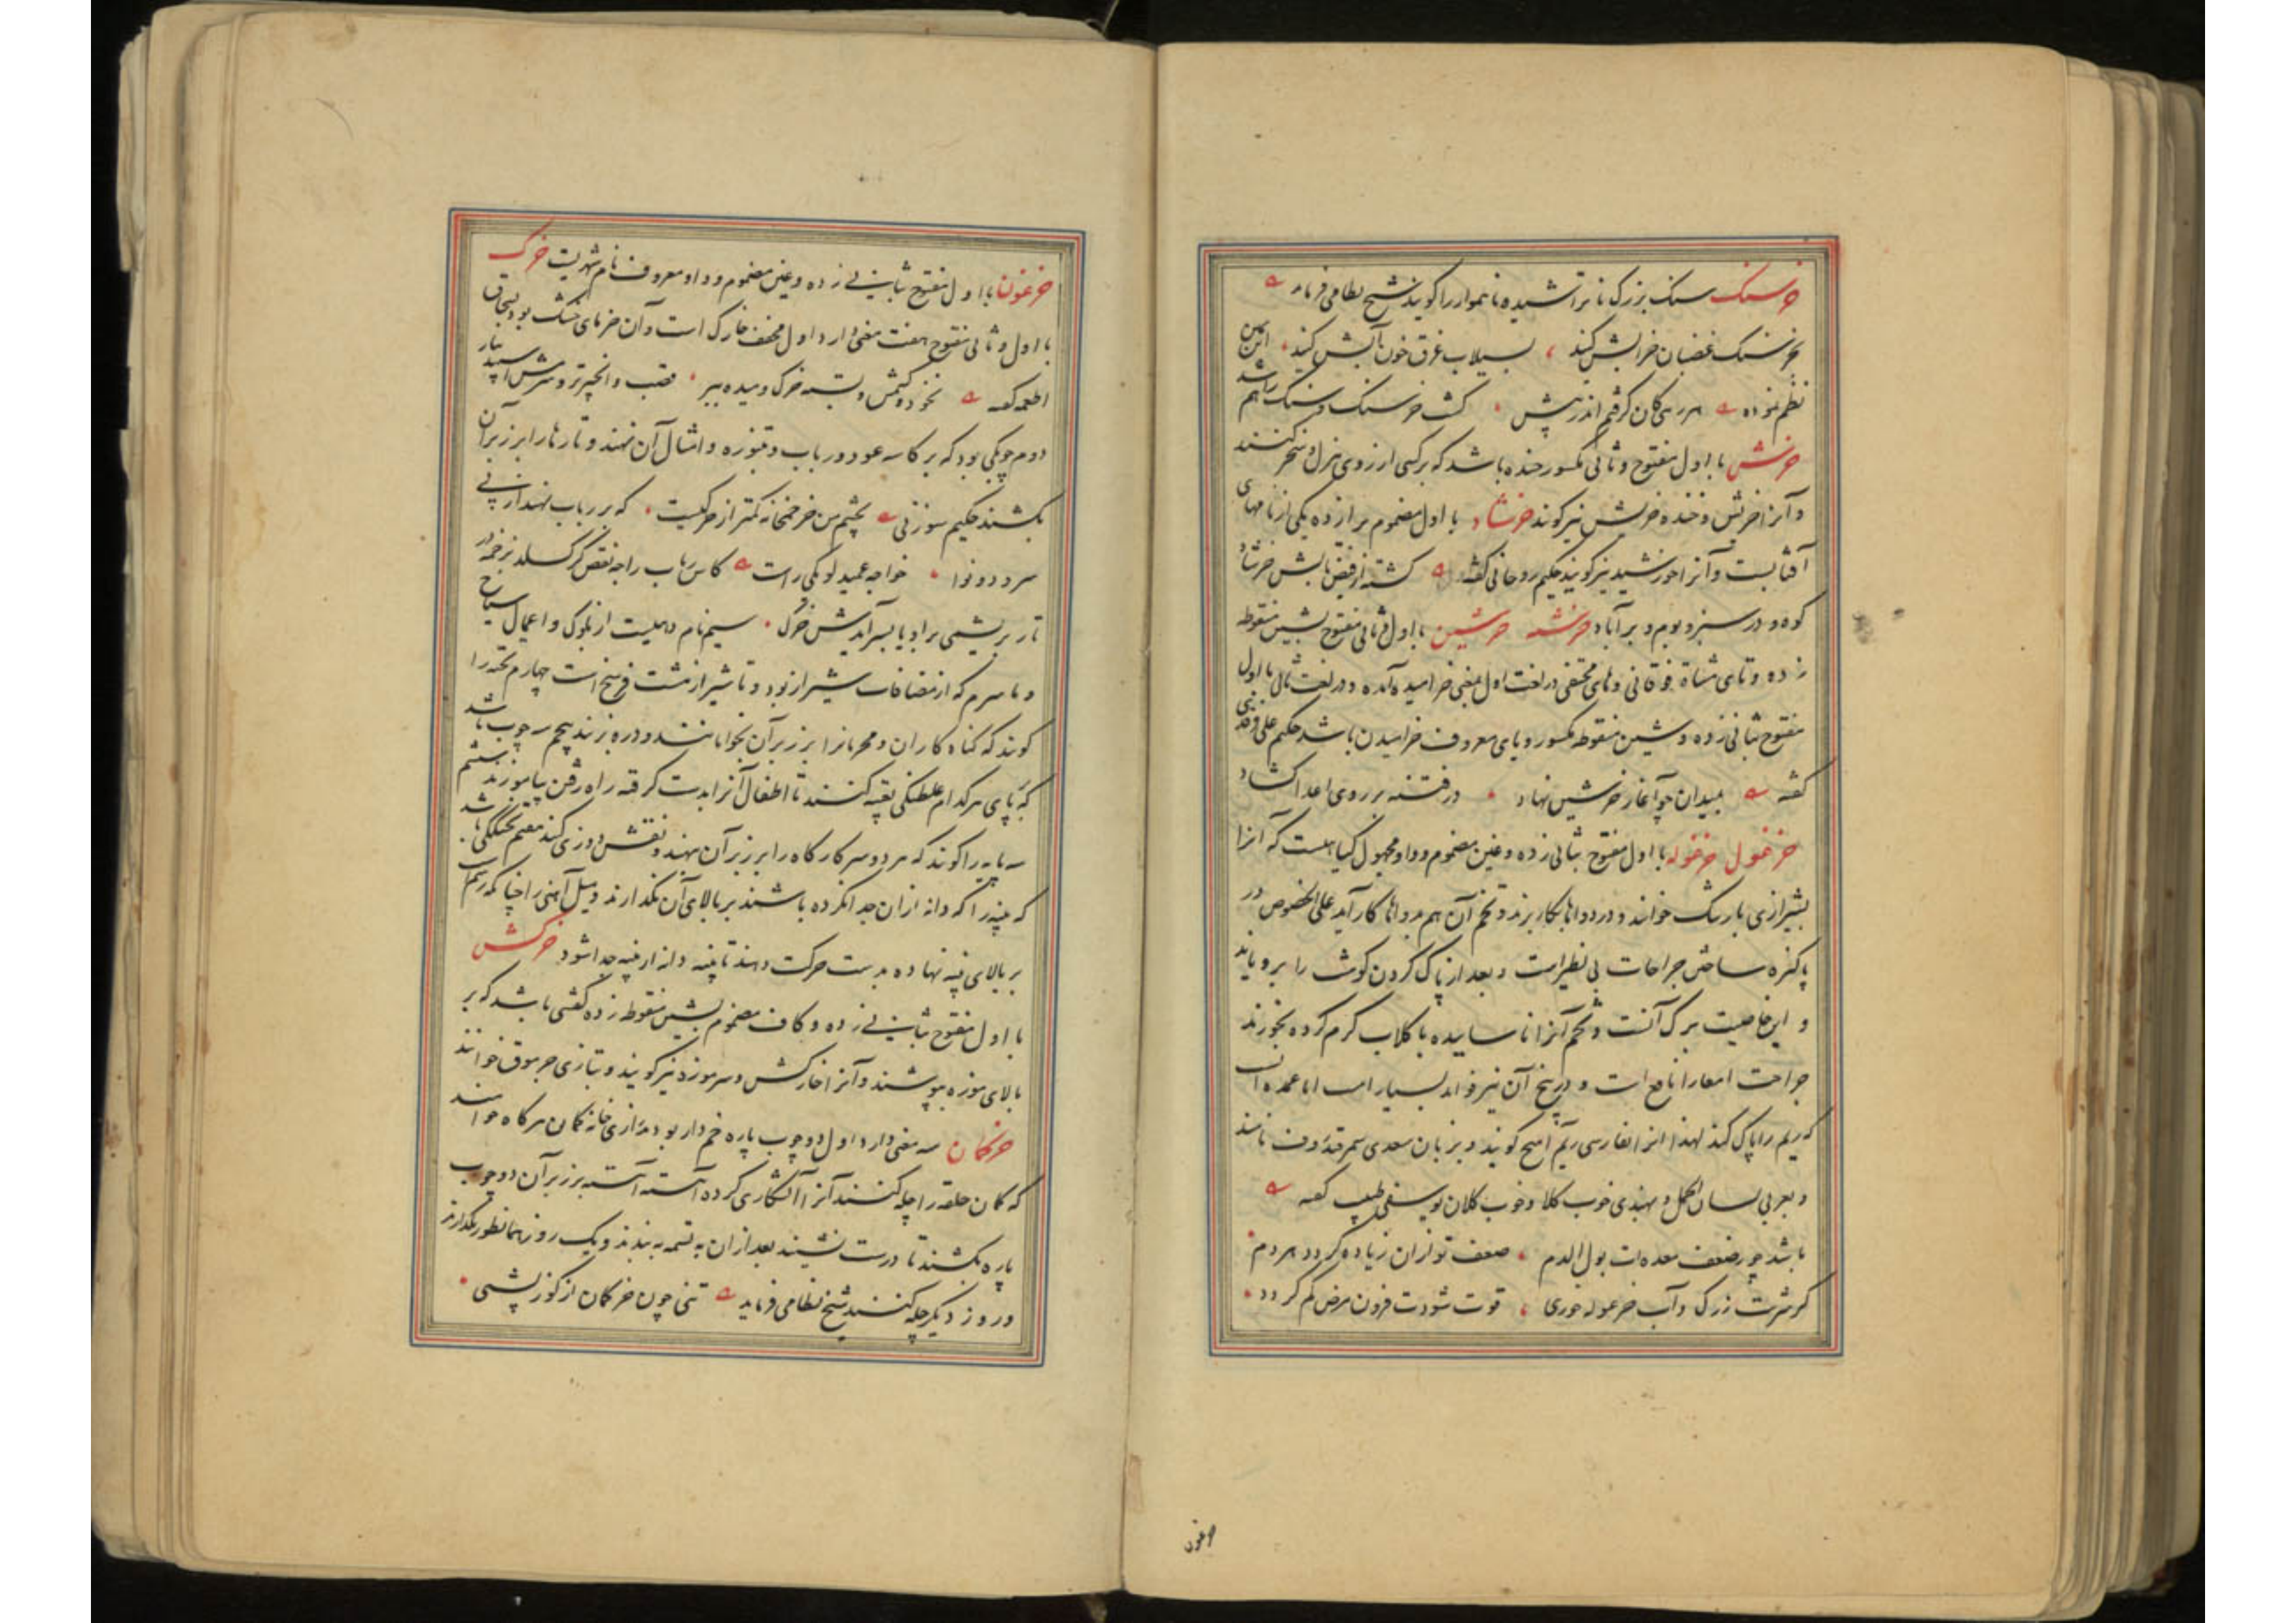 خرسنک سنک بزرک ناتراشیده ناهموار را کویند شیخ نظامی فرماید
بخرسنک غضبان خرابش کنید بسیلاب غرق خون آبش کنید
نظم نموده هر رهی کان کرفتم اندر پیش کشت خرسنک و سنک راهم
خرش با اول مفتوح و ثانی مکسور خنده باشد که بر کسی از روی هزل و سخر کنند
و آنرا خریش و خنده خریش نیز کویند خرشاد با اول مضموم برا زده یکی از نامهای
آفتابست و آنرا خورشید نیز کویند حکیم روحانی کفته کشته از فیض تابش خرشاد
کوه و در سبز و بوم و بر آباد خرشته خرشین با اول و ثانی مفتوح بشین منقوطه
زده و تای مثناة فوقانی و های مختفی در لغت اول بمعنی خرامیده آمده و در لغت ثانی با اول
مفتوح بثانی زده و شین منقوطه مکسور و یای معروف خرامیدن باشد حکیم علی فرقدی
کفته بمیدان چو آغاز خرشین نهاد در فتنه بر روی اعدا کشاد
خرغول خرغوله با اول مفتوح بثانی زده و غین مضموم و واو مجهول کیاهیست که آنرا
بشیرازی بارتنک خوانند و در دواها بکار برند و تخم آن هم بدواها کار آید علی الخصوص در
پاکیزه ساختن جراحات بی نظیر است و بعد از پاک کردن کوشت را برویاند
و این خاصیت برک آنست و تخم آنرا ناساییده با کلاب کرم کرده بخورند
جراحت امعا را نافع است و در بیخ آن نیز فواید بسیار است اما عمده آنست
که ریم را پاک کند لهذا آنرا بفارسی ریم آهنج کویند و بزبان سعدی سمرقند
و بعربی لسان الحمل و بهندی خوب کلا و خوب کلان یوسفی طبیب کفته
باشد چو ز ضعف معده ات بول الدم ضعف تو از آن زیاده کردد هر دم
کر شربت زرک و آب خرغوله خوری قوت شودت فزون مرض کم کردد
خرغون
خرغون با اول مفتوح بثانی زده و غین مضموم و واو معروف نام شهریست خرک
با اول و ثانی مفتوح هفت معنی دارد اول مخفف خارک است و آن خرمای خشک بود بسحاق
اطعمه کفته نخود و کشمش و پسته خرک و میده ببر قصب و انجیر تر و سرمش اسپید بیار
دوم چوبکی بود که بر کاسه عود و رباب و طنبوره و امثال آن نهند و تارها را بر زبر آن
بکشند حکیم سوزنی بچشم من خر خمخانه کمتر از خرکیست که بر رباب نهند از پی
سرود و نوا خواجه عمید لوبکی راست کاس رباب را چه نقص کر کسلد بزخمه در
تار بریشمی بر او یا بسر آیدش خرک سیم نام دهیست از بلوک و اعمال سیاخ
و ماسرم که از مضافات شیراز بود و تا شیراز هشت فرسنخ است چهارم تخته را
کویند که کناه کاران و مجرمانرا بر زبر آن بخوابانند و دره زنند پنجم سه چوب باشد
که بپای هر کدام غلطکی تعبیه کنند تا اطفال آنرا بدست کرفته راه رفتن بیاموزند ششم
سه پایه را کویند که هر دو سر کارکاه را بر زبر آن نهند و نقش دوزی کنند هفتم تختکی باشد
که پنبه را که دانه از ان جدا نکرده باشند بر بالای آن بکذارند و میل آهنی را چنانکه رسم است
بر بالای پنبه نهاده بدست حرکت دهند تا پنبه دانه از پنبه جدا شود خرکش
با اول مفتوح بثانی زده و کاف مضموم بشین منقوطه زده کفشی باشد که بر
بالای موزه پوشند و آنرا خارکش و سرموزه نیز کویند و بتازی جرموق خوانند
خرکمان سه معنی دارد اول دو چوب پاره خم دار بود بدرازی خانه کمان هر کاه خواهند
که کمان حلقه را چله کنند آنرا آشکاری کرده آهسته آهسته بر زبر آن دو چوب
پاره بکشند تا درست نشیند بعد از ان به تسمه به بندند و یک روز همانطور بکذارند
و روز دیکر چله کنند شیخ نظامی فرماید تنی چون خرکمان از کوژ پشتی